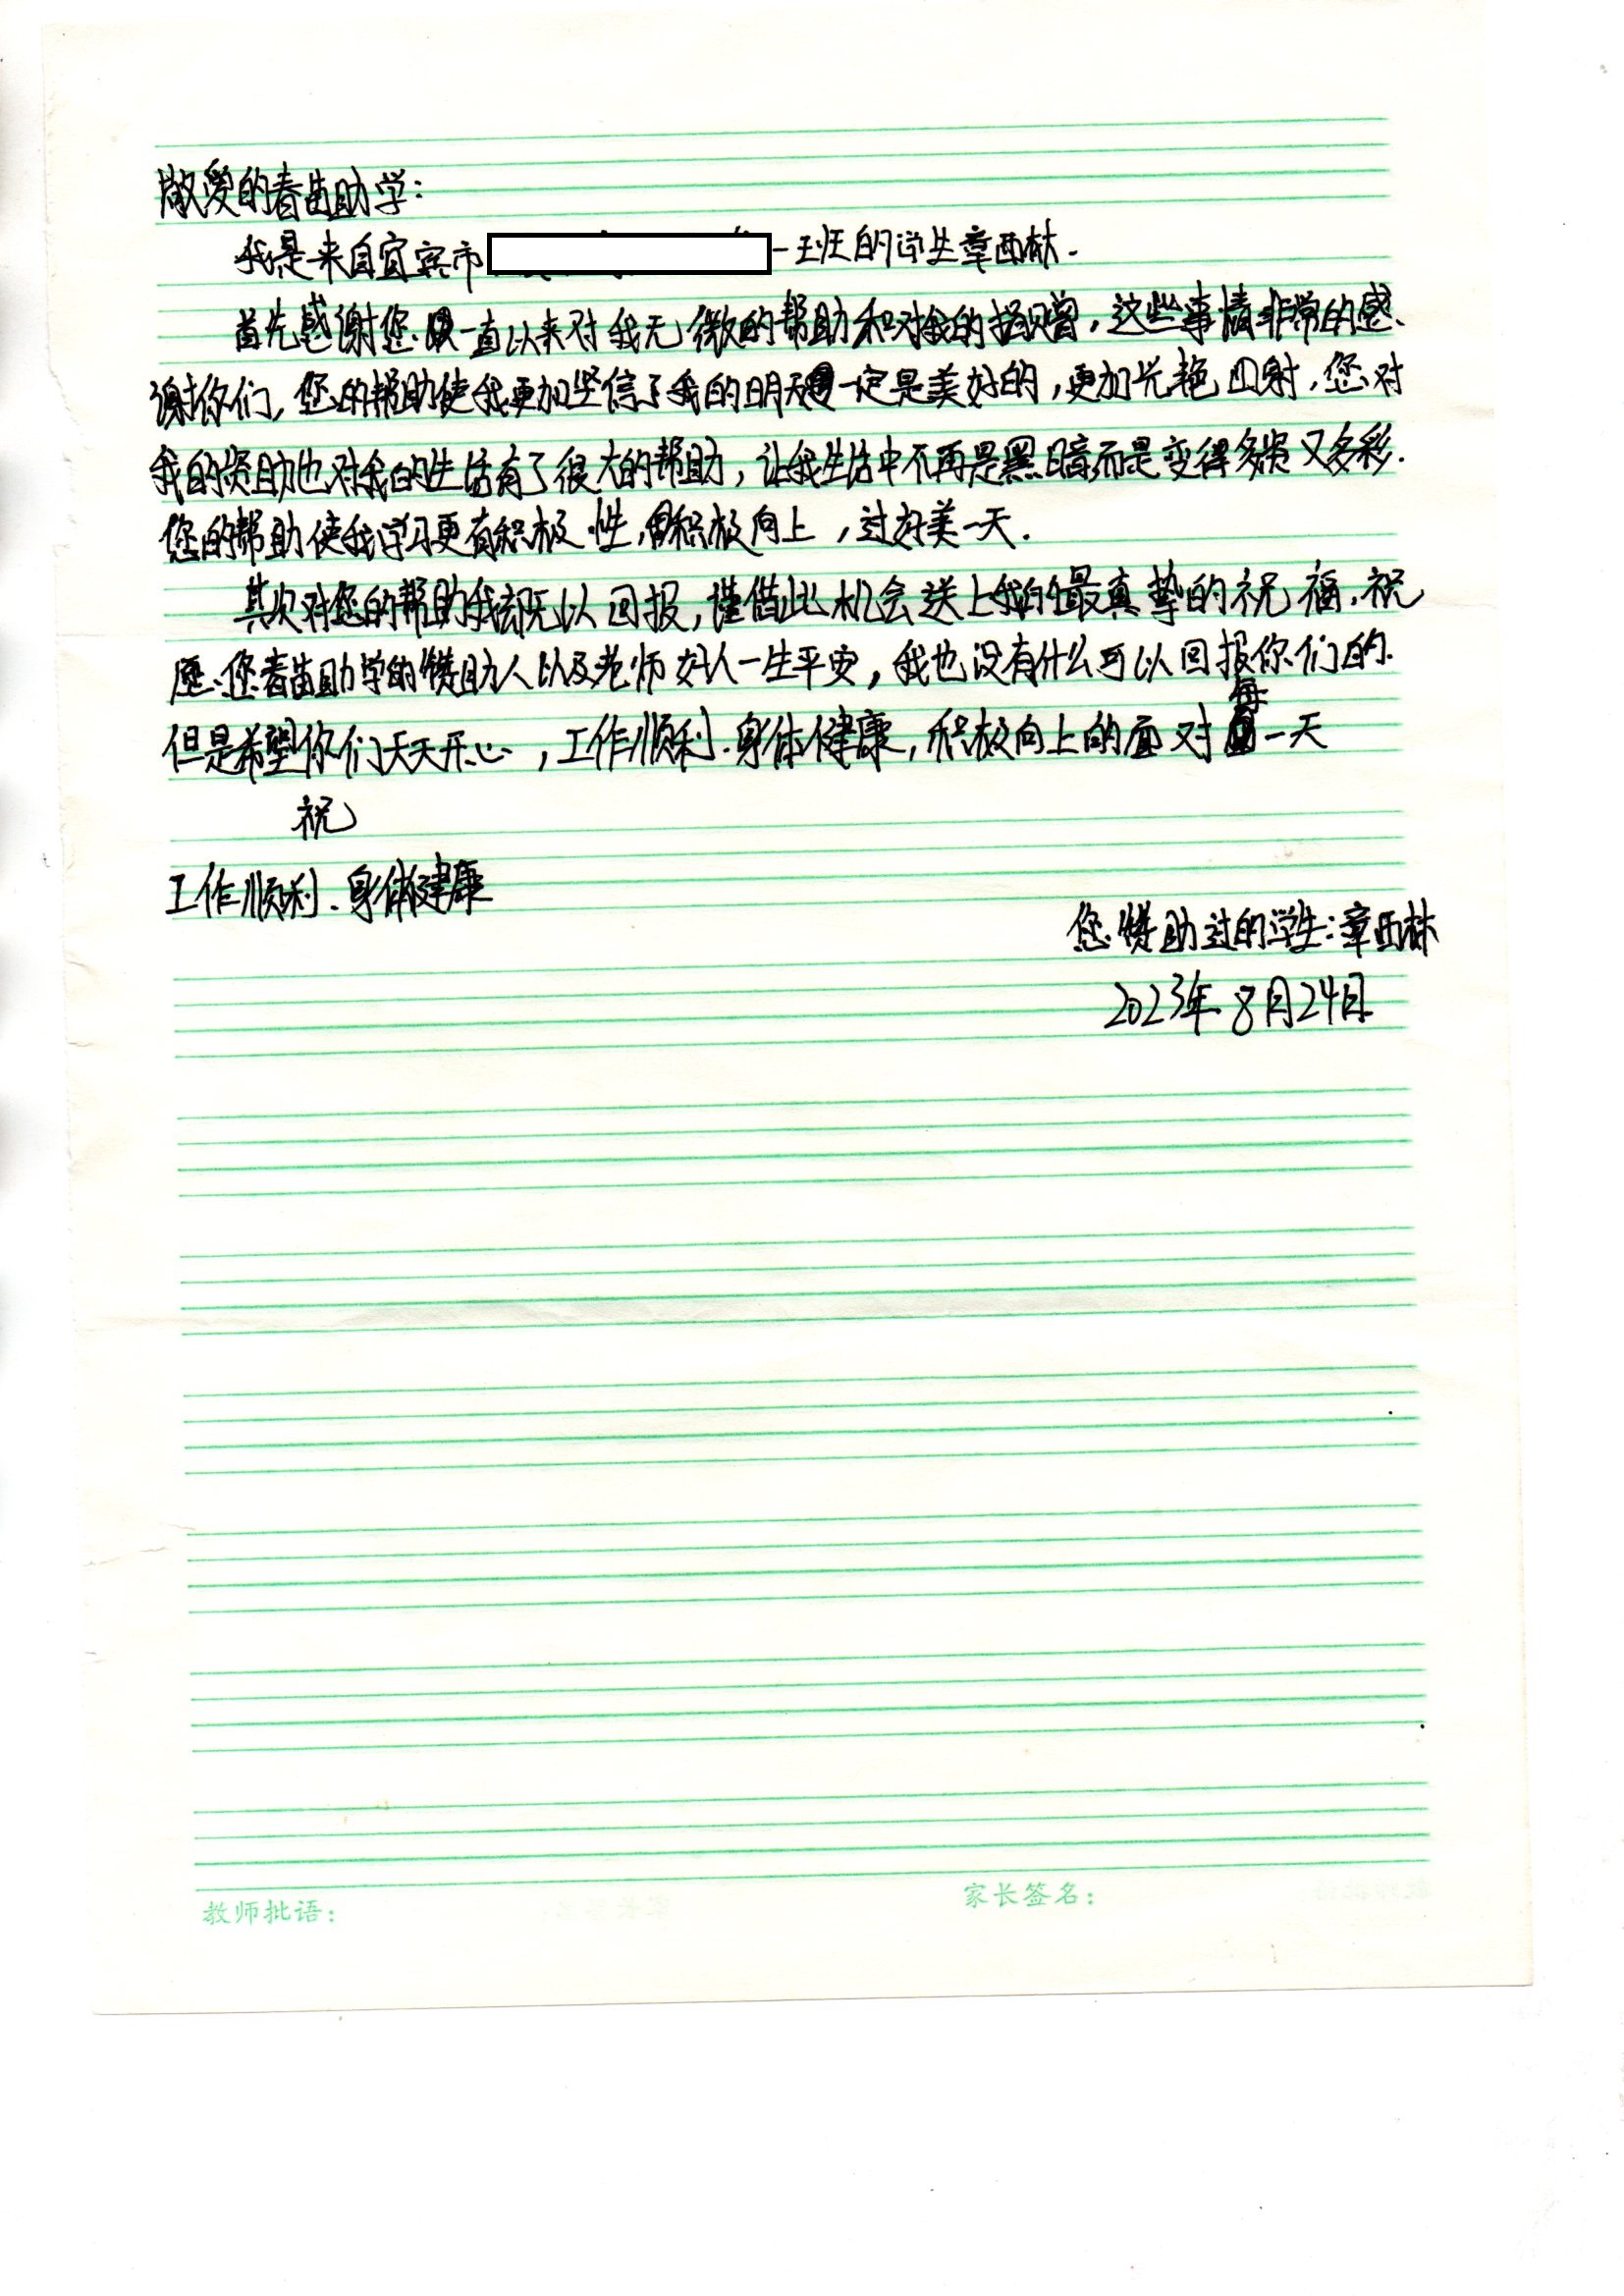 敬爱的春苗助学：
我是来自宜宾市一班的学生章西林.
首先感谢您一直以来对我无微的帮助和对我的捐赠，这些事情非常的感
谢你们，您的帮助使我更加坚信了我的明天一定是美好的，更加光艳四射，您对
我的资助也对我的生活有了很大的帮助，让我生活中不再是黑暗而是变得多资又多彩.
您的帮助使我学习更有积极性，积极向上，过好美一天.
其次对您的帮助我却无以回报，谨借此机会送上我的最真挚的祝福，祝
愿您春苗助学的赞助人以及老师好人一生平安，我也没有什么可以回报你们的.
但是希望你们天天开心，工作顺利.身体健康，积极向上的面对每一天
祝
工作顺利.身体健康
您赞助过的学生：章西林
2023年8月24日
教师批语：
家长签名：